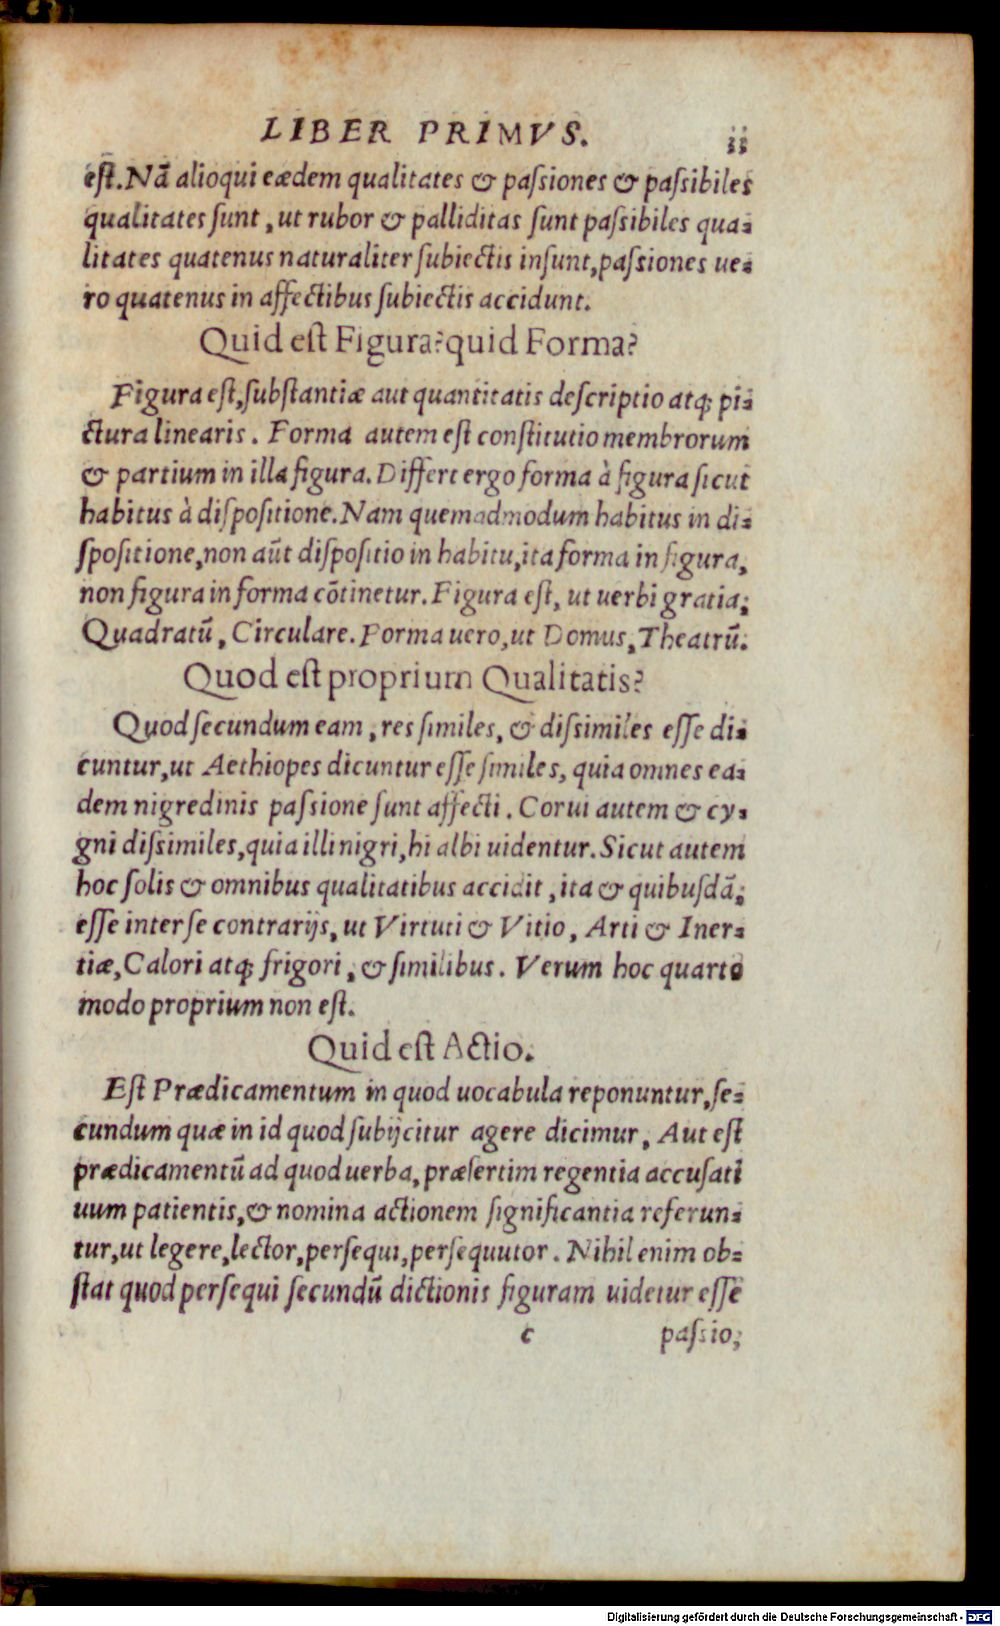 LIBER PRIMVS. ii
est. Nã alioqui eædem qualitates & passiones & passibiles
qualitates sunt, ut rubor & palliditas sunt passibiles qua-
litates quatenus naturaliter subiectis insunt, passiones ue-
ro quatenus in affectibus subiectis accidunt.
Quid est Figura? quid Forma?
Figura est, substantiæ aut quantitatis descriptio atq; pi-
ctura linearis. Forma autem est constitutio membrorum
& partium in illa figura. Differt ergo forma à figura sicut
habitus à dispositione. Nam quemadmodum habitus in di-
spositione, non aũt dispositio in habitu, ita forma in figura,
non figura in forma cõtinetur. Figura est, ut uerbi gratia;
Quadratũ, Circulare. Forma uero, ut Domus, Theatrũ.
Quod est proprium Qualitatis?
Quod secundum eam, res similes, & dissimiles esse di-
cuntur, ut Aethiopes dicuntur esse similes, quia omnes ea-
dem nigredinis passione sunt affecti. Corui autem & cy-
gni dissimiles, quia illi nigri, hi albi uidentur. Sicut autem
hoc solis & omnibus qualitatibus accidit, ita & quibusdã;
esse inter se contrarijs, ut Virtuti & Vitio, Arti & Iner-
tiæ, Calori atq; frigori, & similibus. Verum hoc quarto
modo proprium non est.
Quid est Actio.
Est Prædicamentum in quod uocabula reponuntur, se-
cundum quæ in id quod subijcitur agere dicimur, Aut est
prædicamentũ ad quod uerba, præsertim regentia accusati
uum patientis, & nomina actionem significantia referun-
tur, ut legere, lector, persequi, persequutor. Nihil enim ob-
stat quod persequi secundũ dictionis figuram uidetur esse
c passio;
Digitalisierung gefördert durch die Deutsche Forschungsgemeinschaft - DFG